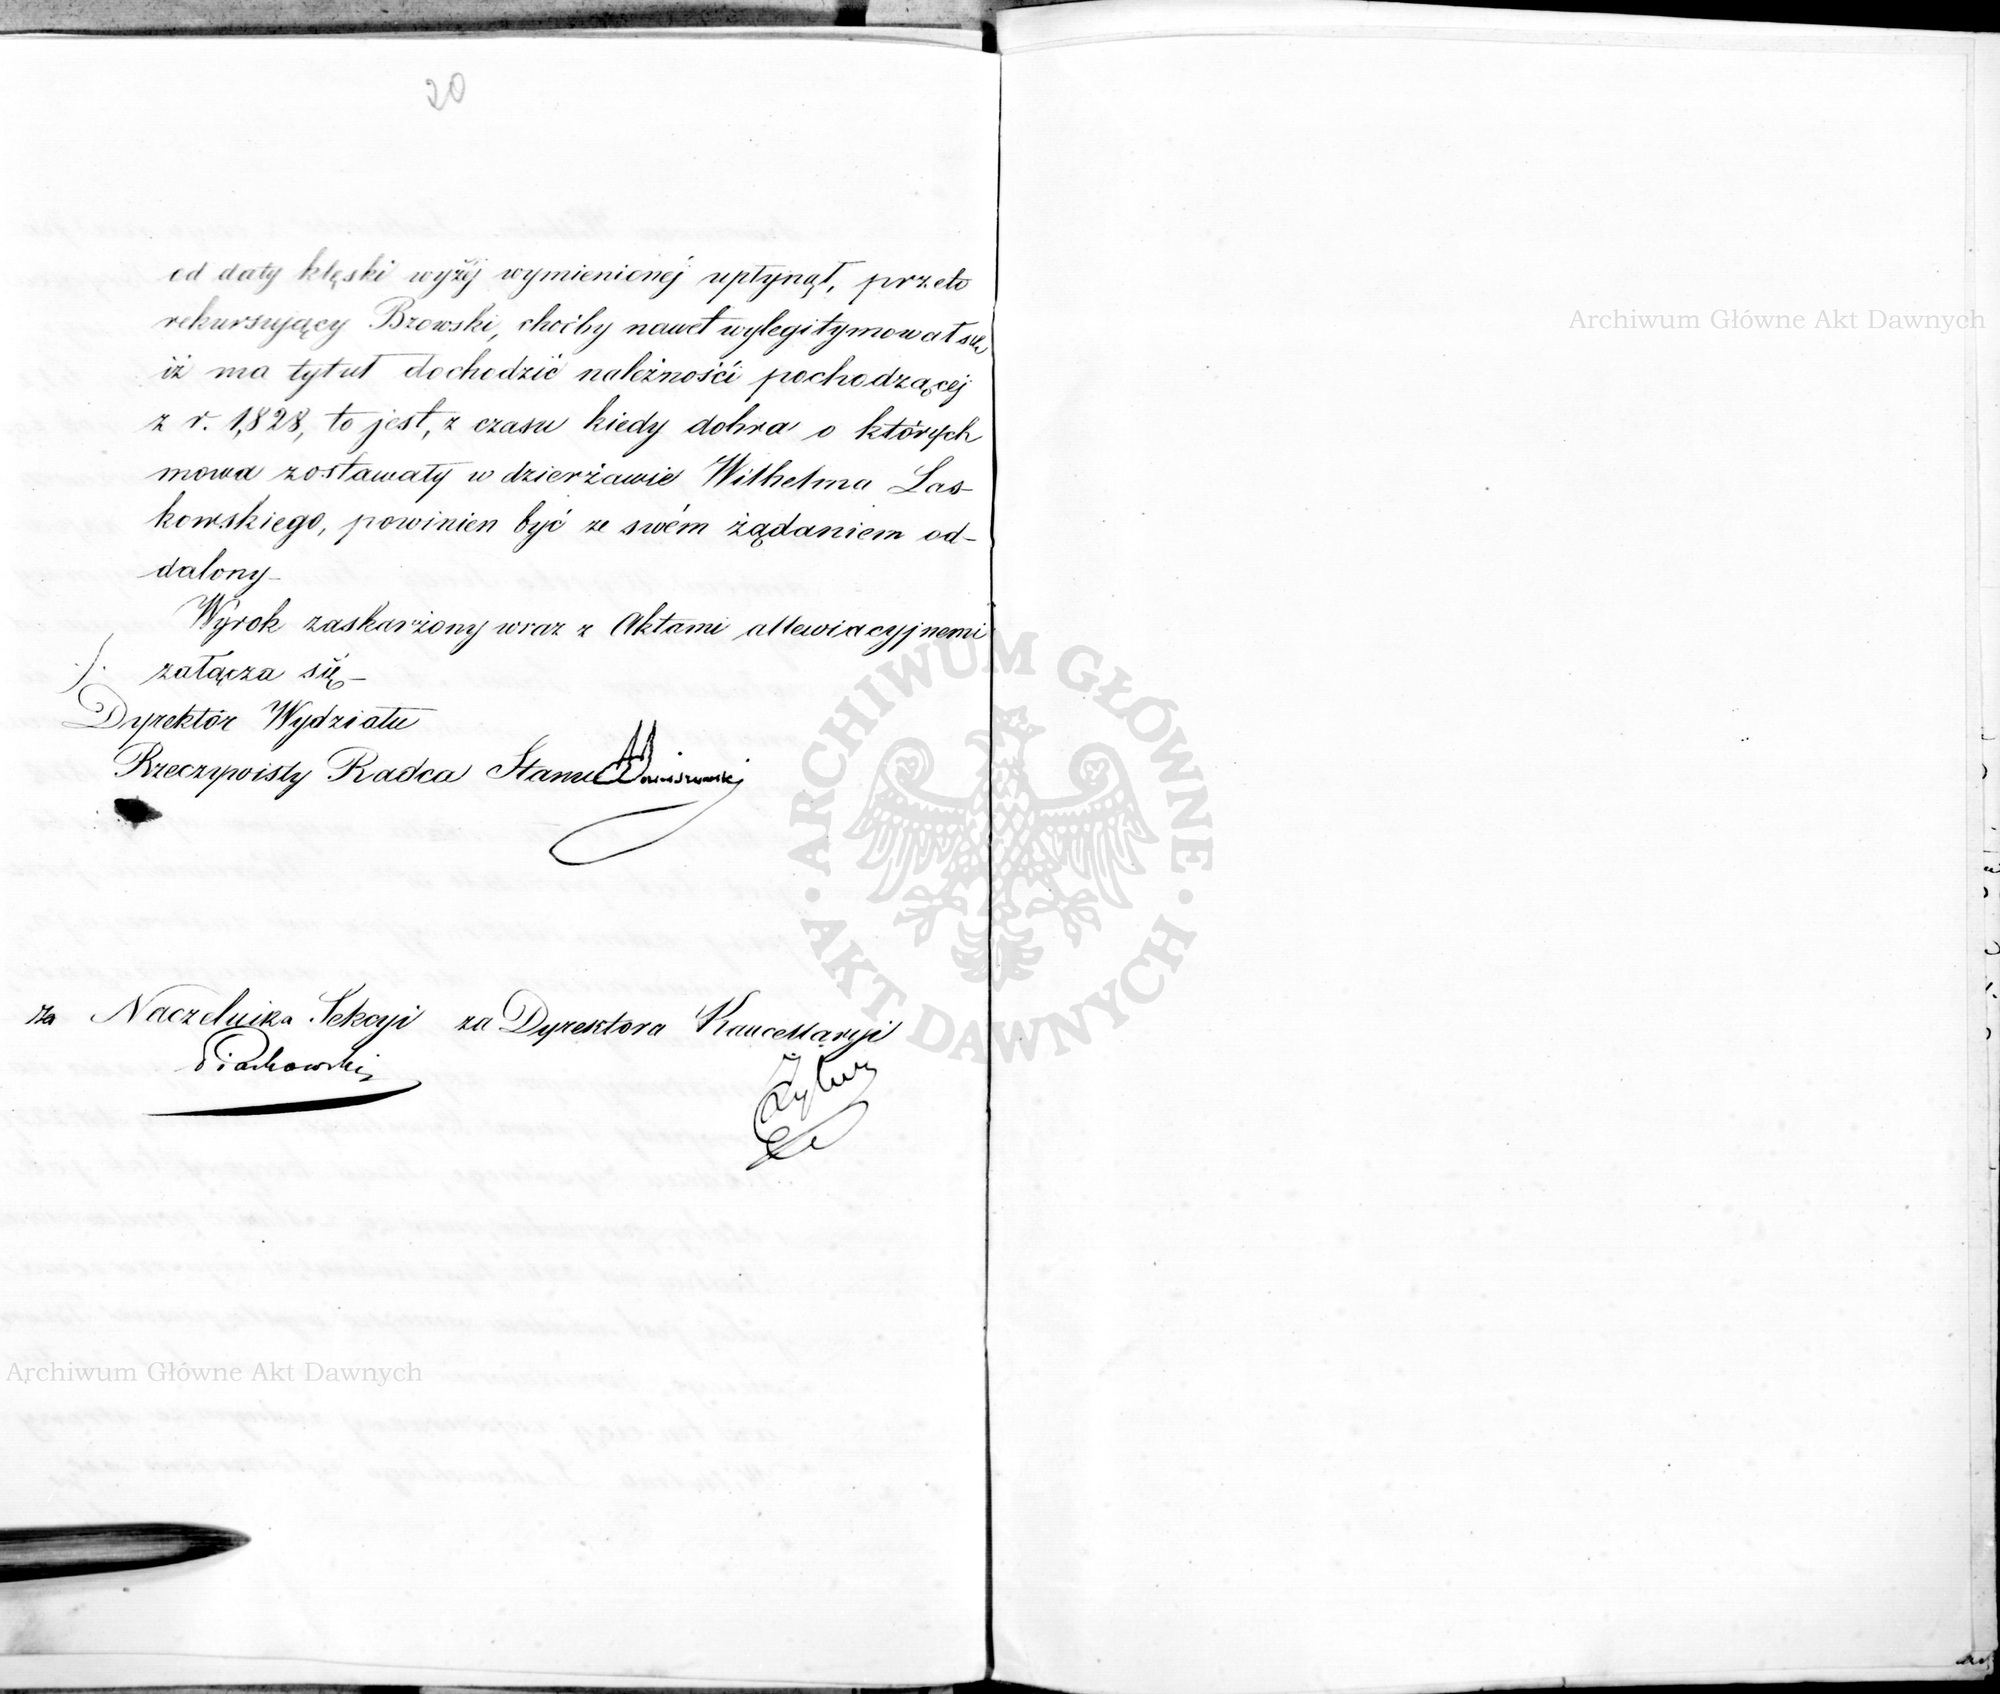 20
od daty klęski wyżéj wymienionéj upłynął, przeto
rekursujący Bzowski, choćby nawet wylegitymował się
iż ma tytuł dochodzić należności pochodzącej
z r. 1,828, to jest, z czasu kiedy dobra o których
mowa zostawały w dzierżawie Wilhelma Las-
kowskiego, powinien być ze swém żądaniem od-
dalony_
Wyrok zaskarżony wraz z Aktami allewiacyjnemi
./. załącza się_
Dyrektór Wydziału
Rzeczywisty Radca Stanu
za Naczelnika Sekcyi za Dyrektora Kancellaryi
Piaskowski
Archiwum Główne Akt Dawnych
ARCHIWUM GŁÓWNE • AKT DAWNYCH •
Archiwum Główne Akt Dawnych